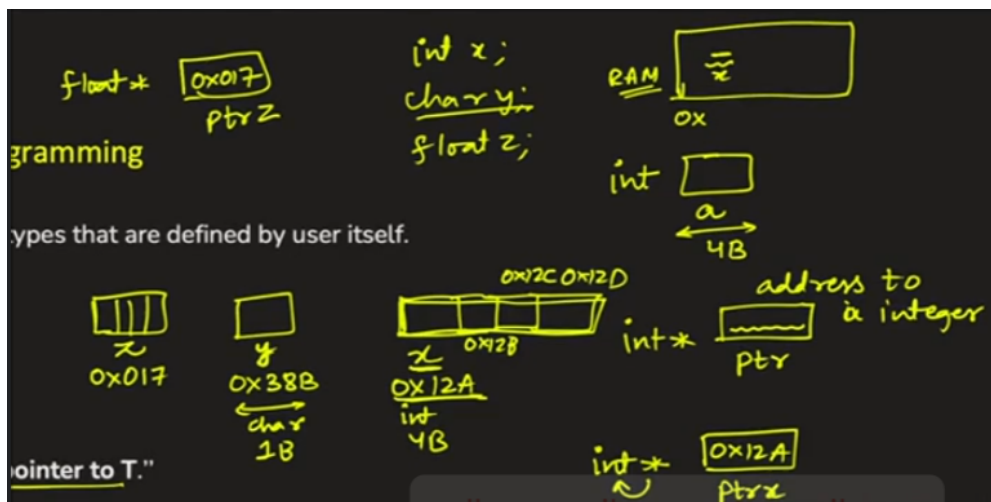 float*
0x017
ptrz
int x;
char y;
float z;
RAM
x
0x
gramming
int
a
4B
types that are defined by user itself.
z
0x017
y
0x38B
char
1B
0x12C 0x12D
0x12B
x
0x12A
int
4B
address to
a integer
int*
ptr
ointer to T."
int*
0x12A
ptrx